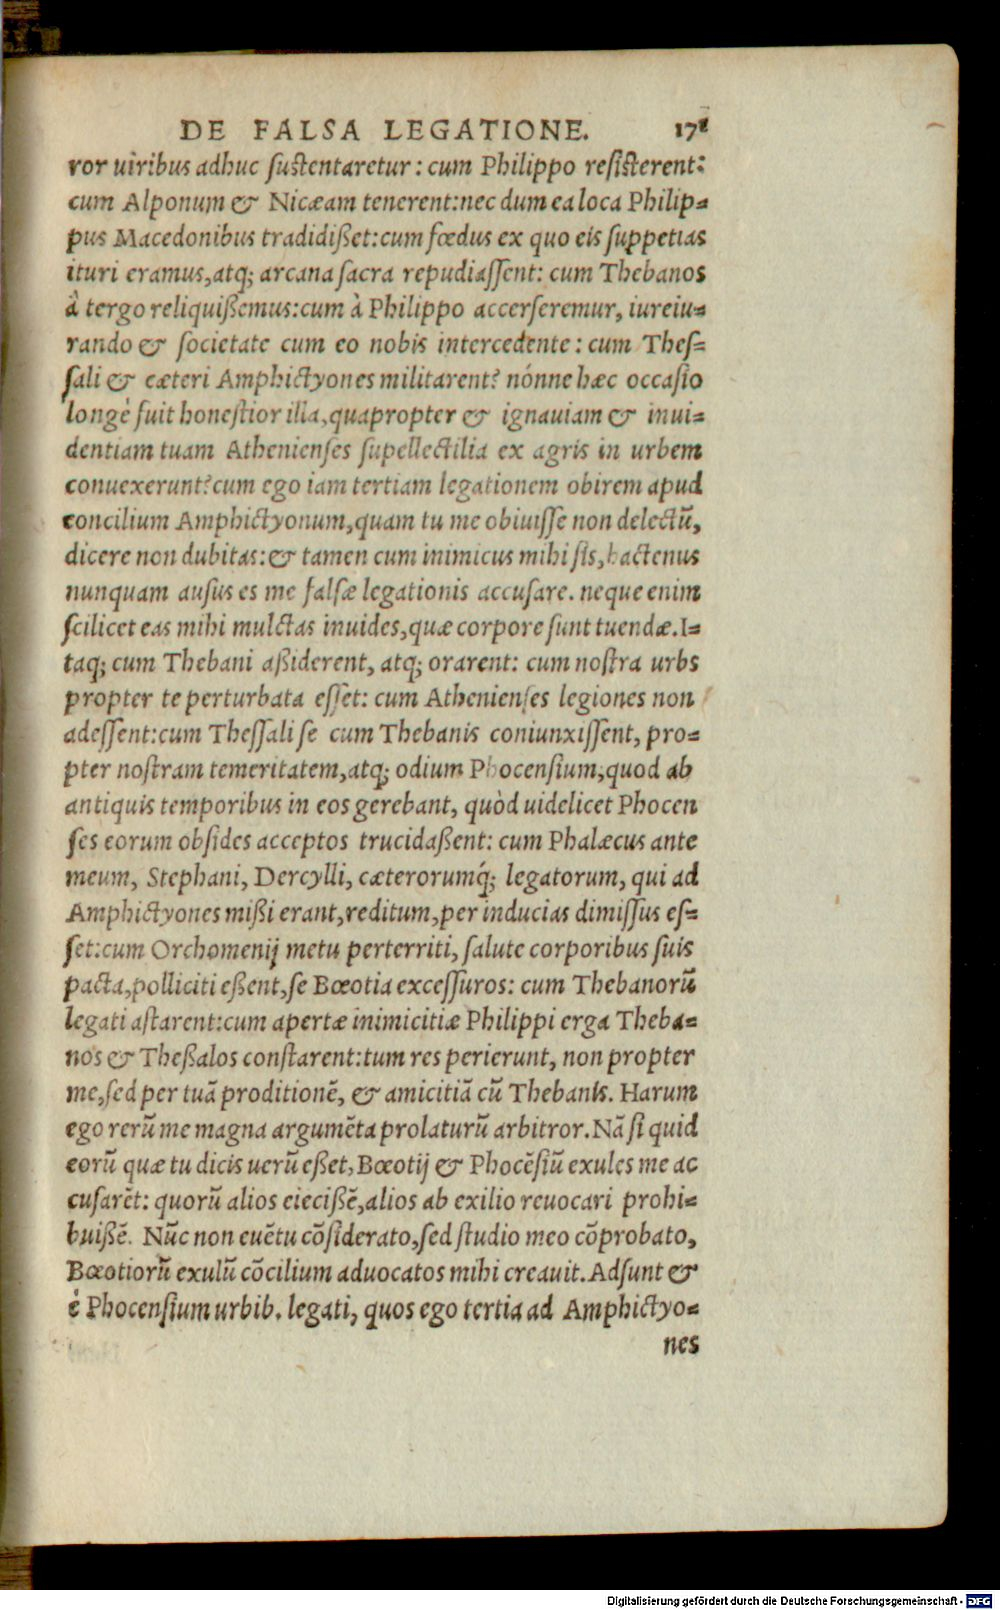 DE FALSA LEGATIONE.
ror uiribus adhuc sustentaretur: cum Philippo resisterent:
cum Alponum & Nicæam tenerent: nec dum ea loca Philip=
pus Macedonibus tradidißet: cum fœdus ex quo eis suppetias
ituri eramus, atq; arcana sacra repudiassent: cum Thebanos
à tergo reliquißemus: cum à Philippo accerseremur, iureiu=
rando & societate cum eo nobis intercedente: cum Thes=
sali & cæteri Amphictyones militarent? nónne hæc occasio
longè fuit honestior illa, quapropter & ignauiam & inui=
dentiam tuam Athenienses supellectilia ex agris in urbem
conuexerunt? cum ego iam tertiam legationem obirem apud
concilium Amphictyonum, quam tu me obiuisse non delectū,
dicere non dubitas: & tamen cum inimicus mihi sis, hactenus
nunquam ausus es me falsæ legationis accusare. neque enim
scilicet eas mihi mulctas inuides, quæ corpore sunt tuendæ. I=
taq; cum Thebani aßiderent, atq; orarent: cum nostra urbs
propter te perturbata esset: cum Athenienses legiones non
adessent: cum Thessali se cum Thebanis coniunxissent, pro=
pter nostram temeritatem, atq; odium Phocensium, quod ab
antiquis temporibus in eos gerebant, quòd uidelicet Phocen
ses eorum obsides acceptos trucidaßent: cum Phalæcus ante
meum, Stephani, Dercylli, cæterorumq́; legatorum, qui ad
Amphictyones mißi erant, reditum, per inducias dimissus es=
set: cum Orchomenij metu perterriti, salute corporibus suis
pacta, polliciti eßent, se Bœotia excessuros: cum Thebanorū
legati astarent: cum apertæ inimicitiæ Philippi erga Theba=
nos & Theßalos constarent: tum res perierunt, non propter
me, sed per tuā proditionē, & amicitiā cū Thebanis. Harum
ego rerū me magna argumēta prolaturū arbitror. Nā si quid
eorū quæ tu dicis uerū eßet, Bœotij & Phocēsiū exules me ac
cusarēt: quorū alios eiecißē, alios ab exilio reuocari prohi=
buißē. Nūc non euētu cōsiderato, sed studio meo cōprobato,
Bœotiorū exulū cōcilium aduocatos mihi creauit. Adsunt &
è Phocensium urbib. legati, quos ego tertia ad Amphictyo=
nes
Digitalisierung gefördert durch die Deutsche Forschungsgemeinschaft - DFG